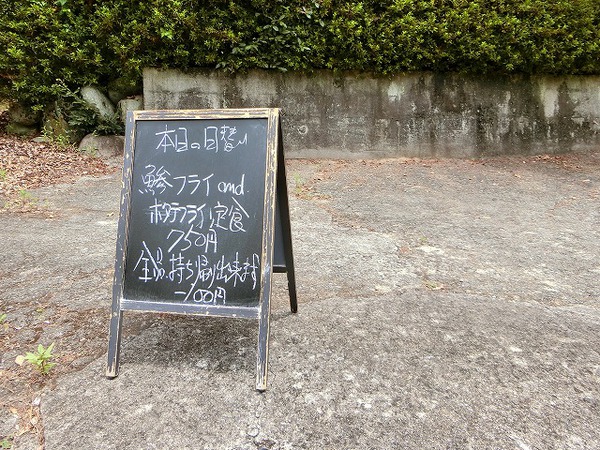 本日の日替り
鯵フライand.
ホタテフライ定食
750円
全品持ち帰り出来ます
-100円